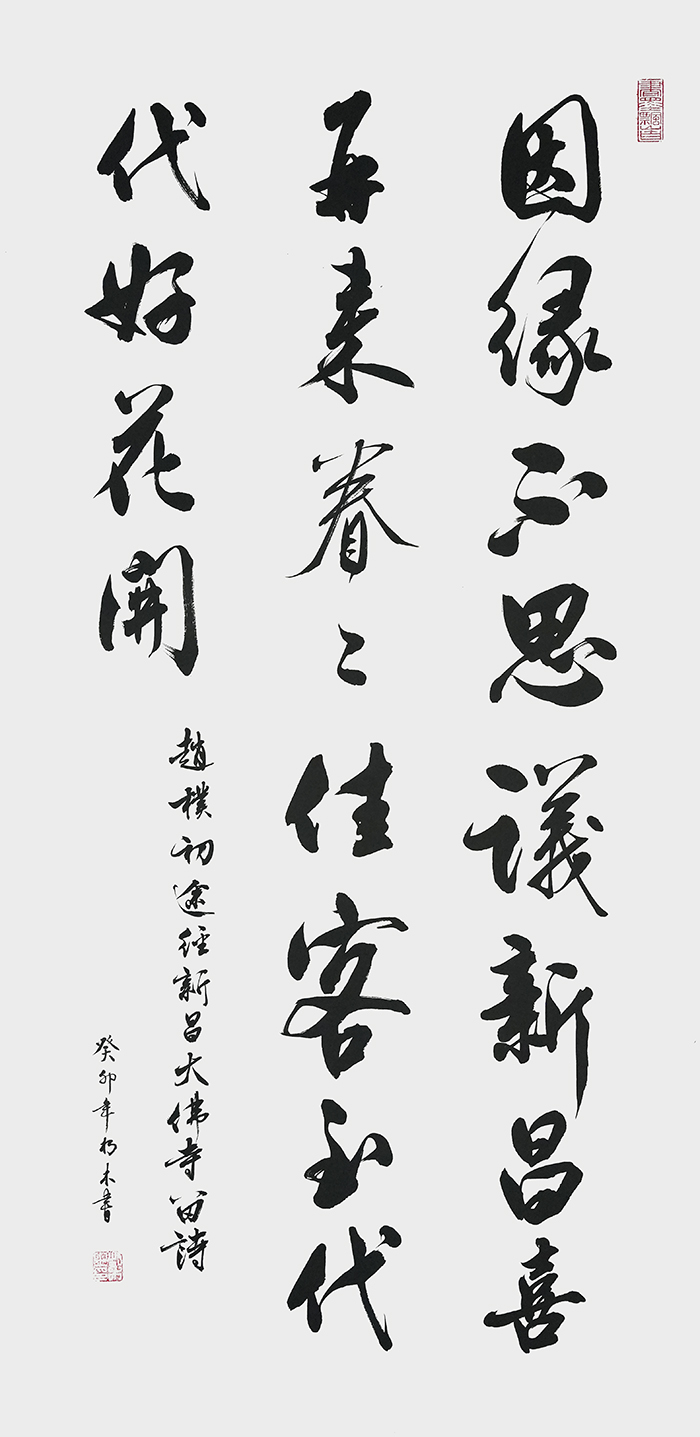 因緣不思議新昌喜
再来眷々佳客至代
代好花開
趙樸初途经新昌大佛寺留詩
癸卯年朽木書